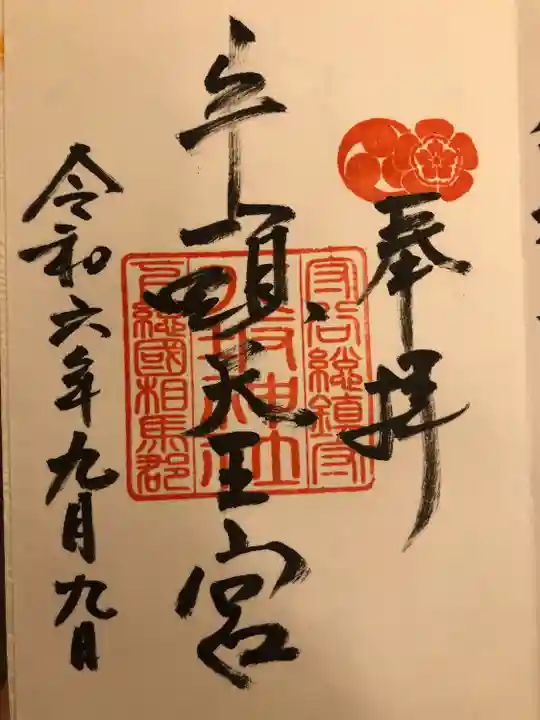 奉拝
牛頭天王宮
守谷総鎮守
八坂神社
下総國相馬郡
令和六年九月九日